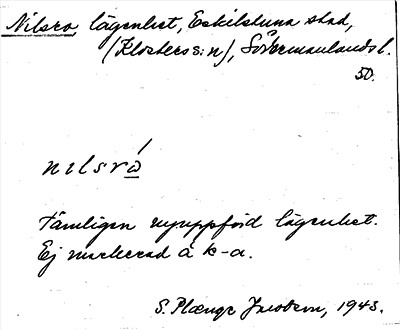 Nilsro, lägenhet, Eskilstuna stad,
(Klosters s:n), Södermanlands l.
50.
nilsrò
Tämligen nyuppförd lägenhet.
Ej markerad å k-a.
S. Plænge Jacobsen, 1943.